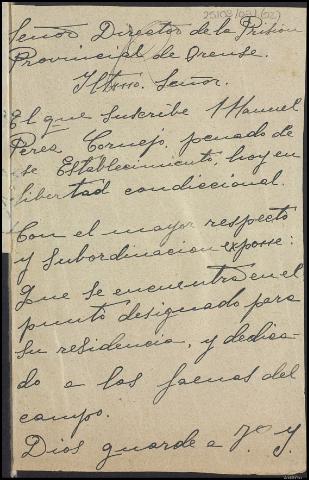 Señor Director de la Prision
Provincial de Orense.
Iltmo. Señor.
El que suscribe Manuel
Perea Cornejo, penado de
se Establecimiento, hoy en
libertad condiccional.
Con el mayor respecto
y subordinacion expone:
Que se encuentra en el
punto designado para
su residencia, y dedica-
do a las faenas del
campo.
Dios guarde a